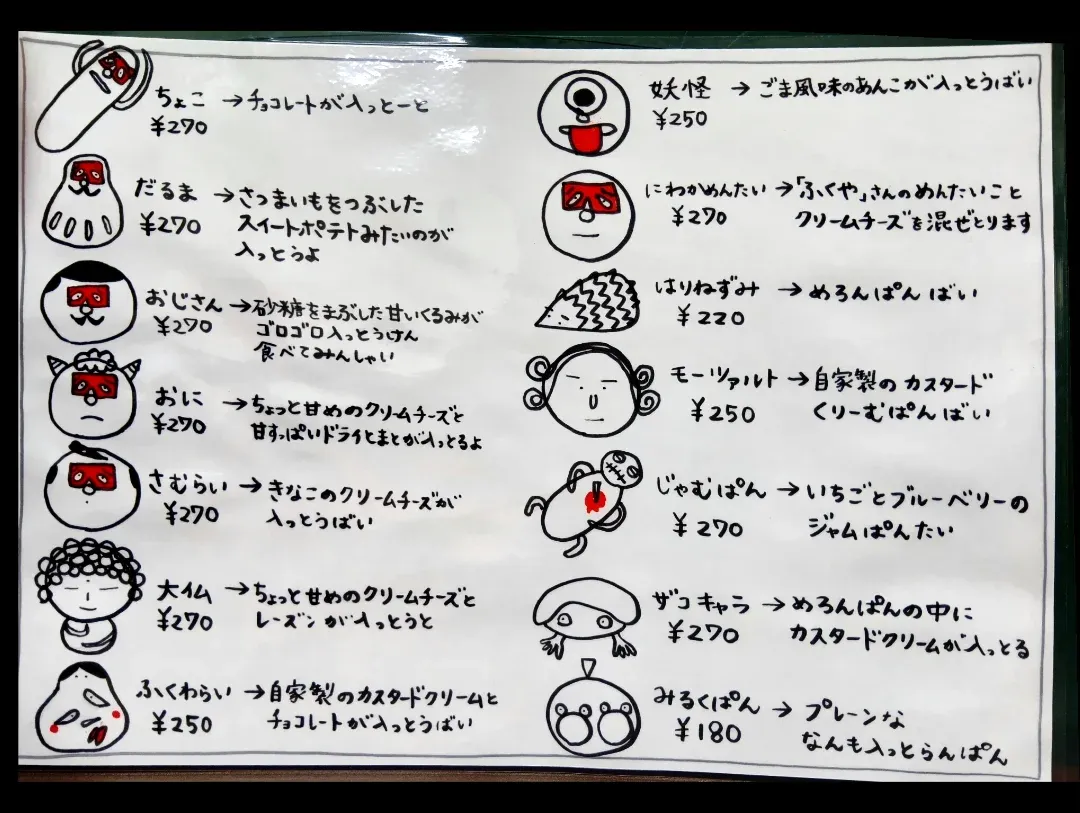 ちょこ →チョコレートが入っとーと
¥270
だるま →さつまいもをつぶした
¥270 スイートポテトみたいのが
入っとうよ
おじさん →砂糖をまぶした甘いくるみが
¥270 ゴロゴロ入っとうけん
食べてみんしゃい
おに →ちょっと甘めのクリームチーズと
¥270 甘すっぱいドライとまとが入っとるよ
さむらい →きなこのクリームチーズが
¥270 入っとうばい
大仏 →ちょっと甘めのクリームチーズと
¥270 レーズンが入っとうと
ふくわらい →自家製のカスタードクリームと
¥250 チョコレートが入っとうばい
妖怪 →ごま風味のあんこが入っとうばい
¥250
にわかめんたい →「ふくや」さんのめんたいこと
¥270 クリームチーズを混ぜとります
はりねずみ →めろんぱんばい
¥220
モーツァルト →自家製のカスタード
¥250 くりーむぱんばい
じゃむぱん →いちごとブルーベリーの
¥270 ジャムぱんたい
ザコキャラ →めろんぱんの中に
¥270 カスタードクリームが入っとる
みるくぱん →プレーンな
¥180 なんも入っとらんぱん